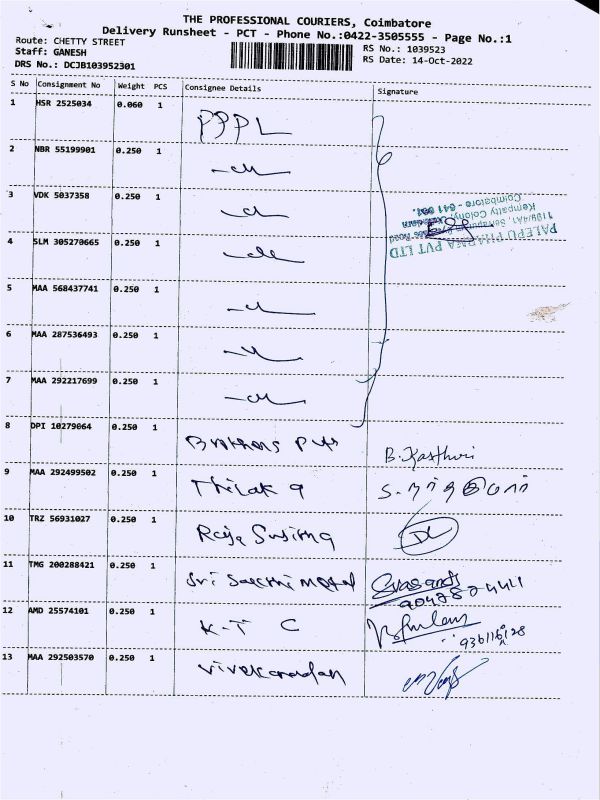 THE PROFESSIONAL COURIERS, Coimbatore
Delivery Runsheet - PCT - Phone No.:0422-3505555 - Page No.:1
Route: CHETTY STREET
Staff: GANESH
DRS No.: DCJB103952301
RS No.: 1039523
RS Date: 14-Oct-2022
S No Consignment No Weight PCS Consignee Details Signature
1 HSR 2525034 0.060 1 PPPL
2 NBR 55199901 0.250 1
3 VDK 5037358 0.250 1
4 SLM 305270665 0.250 1
5 MAA 568437741 0.250 1
6 MAA 287536493 0.250 1
7 MAA 292217699 0.250 1
PALEPU PHARMA PVT LTD
Kempatty Colony,
Coimbatore - 641 001.
8 DPI 10279064 0.250 1 Brothers B. Kasthuri
9 MAA 292499502 0.250 1 Thilak a
10 TRZ 56931027 0.250 1 Raja
11 TMG 200288421 0.250 1 Sri Sakthi Metal
12 AMD 25574101 0.250 1 K-T C
13 MAA 292503570 0.250 1 Vivekanadan